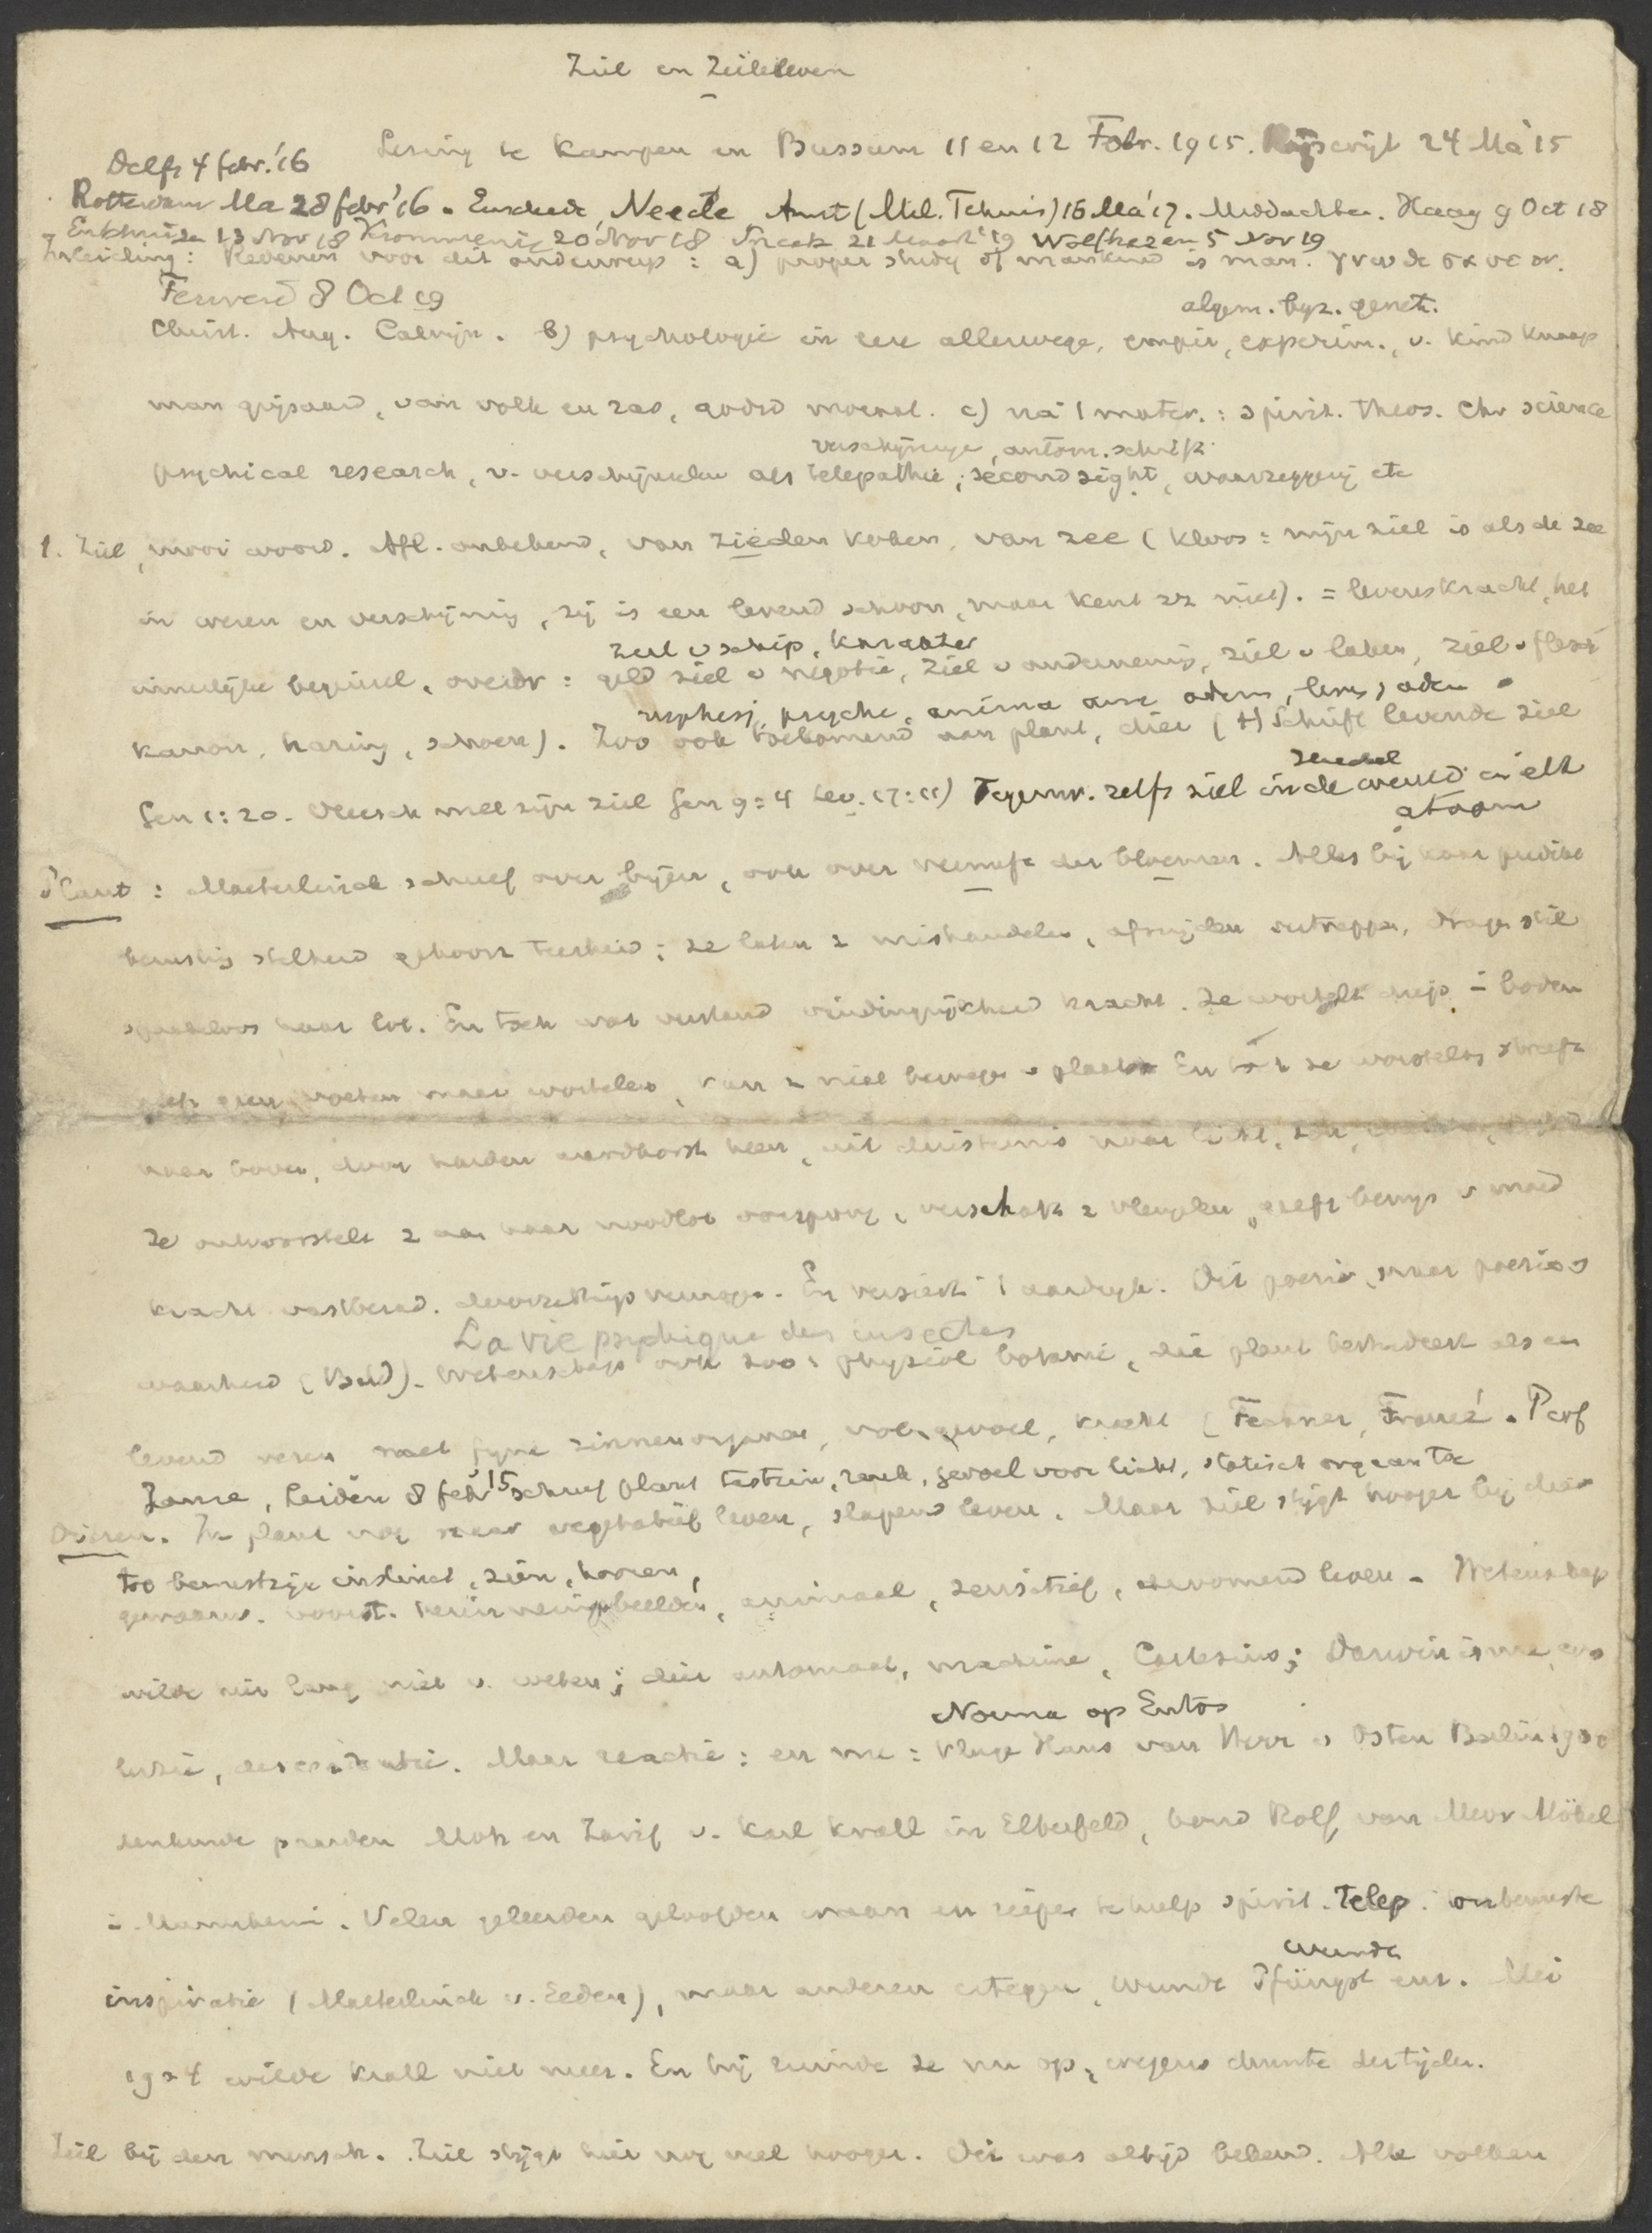 Ziel en Zieleleven
Lezing te Kampen en Bussum 11 en 12 Febr. 1915. Rijswijk 24 Ma '15
Delft 4 febr. '16
Rotterdam Ma 28 febr '16. Enschede, Neede, Amst (Mil. Tehuis) 16 Ma '17. Middachten. Haag 9 Oct 18
Enkhuizen 13 Nov 18 Krommenie 20 Nov 18 Sneek 21 Maart '19 Wolfhezen 5 Nov 19
Inleiding: Redenen voor dit onderwerp: a) proper study of mankind is man.
Ferwerd 8 Oct 19
algem. byz. genet.
Christ. Aug. Calvijn. b) psychologie in eere allerwege, empir, experim., v. kind knaap
man grijsaard, van volk en ras, godsd moraal. c) na 1 mater.: spirit. theos. Chr science
verschijninge, autom. schrift
psychical research, v. verschijnselen als telepathie, second sight, waarzeggerij etc
1. Ziel, mooi woord. Afl. onbekend, van zieden koken, van zee (Kloos: mijn ziel is als de zee
in wezen en verschijning, zij is een levend schoon, maar kent zz niet). = levenskracht, het
ziel v schip, karakter
innerlijke beginsel, overdr: geld ziel v negotie, ziel v onderneming, ziel v laken, ziel v flesch
nephesj, psyche, anima adem, adem
kanon, haring, schoen). Zoo ook toekomend aan plant, dier (H Schrift levende ziel
Gen 1:20. Vleesch met zijn ziel Gen 9:4 Lev. 17:11) Tegenw. zelfs ziel in de wereld in elk
atoom
Plant: Maeterlinck schreef over bijen, ook over vernuft der bloemen. Alles bij haar
stilheid teerheid; ze laten z mishandelen, afsnijden vertrappen, dragen stil
haar lot. En toch wat verstand vindingrijkheid kracht. Ze wortelt diep i bodem
geen voeten maar wortelen, kan z niet bewegen v plaats. En toch ze worstelt, streeft
naar boven, door harden aardkorst heen, uit duisternis naar licht,
Ze ontworstelt z aan haar noodlot, verschaft z vleugelen, geeft bewijs v moed
kracht vastberad. doorzettingsvermogen. En versiert 1 aardrijk. Dit poezie, maar poezie is
La vie psychique des insectes
waarheid. Wetenschap ook zoo: physiol botanie, die plant beschrijft als en
levend wezen met fijne zinnenorganen, vol gevoel, kracht (Fechner, Francé. Prof
Janse, Leiden 8 feb '15 schreef plant tastzin, reuk, gevoel voor licht, statisch orgaan toe
Dieren. In plant nog maar vegetatief leven, slapend leven. Maar ziel stijgt hooger bij dier
tot bewustzijn instinct, zien, hooren,
gewaarw. voorst. herinneringsbeelden, animaal, sensitief, droomend leven. Wetenschap
wilde hier lang niet v. weten; dier automaat, machine, Cartesius; Darwinisme, evo
lutie, descendentie. Maar reactie: en nu: Kluge Hans van Herr v Osten Berlin 1900
Nouma op Entos
denkende paarden Moh en Zarif v. Karl Krall in Elberfeld, hond Rolf, van Mevr Möbel
i Mannheim. Velen geleerden geloofden eraan en riepen te hulp spirit. Telep. onbewuste
inspiratie (Maeterlinck v. Eeden), maar anderen ertegen, Wundt Pfüngst enz. Mei
1914 wilde Krall niet meer. En hij ruimde ze nu op, wegens drukte der tijden.
Ziel bij den mensch. Ziel stijgt hier nog veel hooger. Dit was altijd bekend. Alle volken